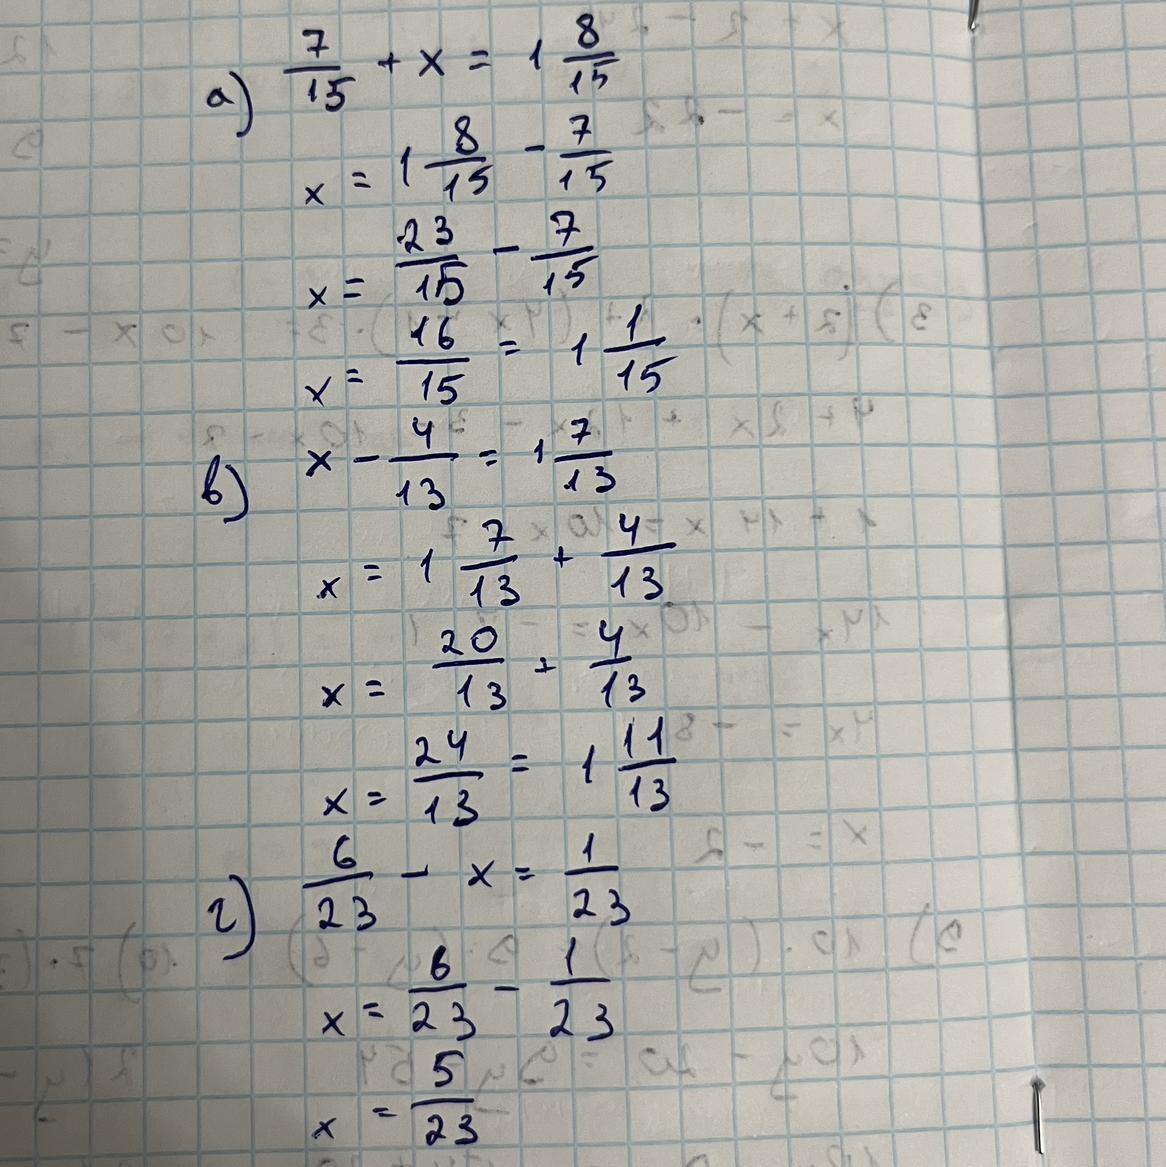 а) 7/15 + x = 1 8/15
x = 1 8/15 - 7/15
x = 23/15 - 7/15
x = 16/15 = 1 1/15
в) x - 4/13 = 1 7/13
x = 1 7/13 + 4/13
x = 20/13 + 4/13
x = 24/13 = 1 11/13
г) 6/23 - x = 1/23
x = 6/23 - 1/23
x = 5/23